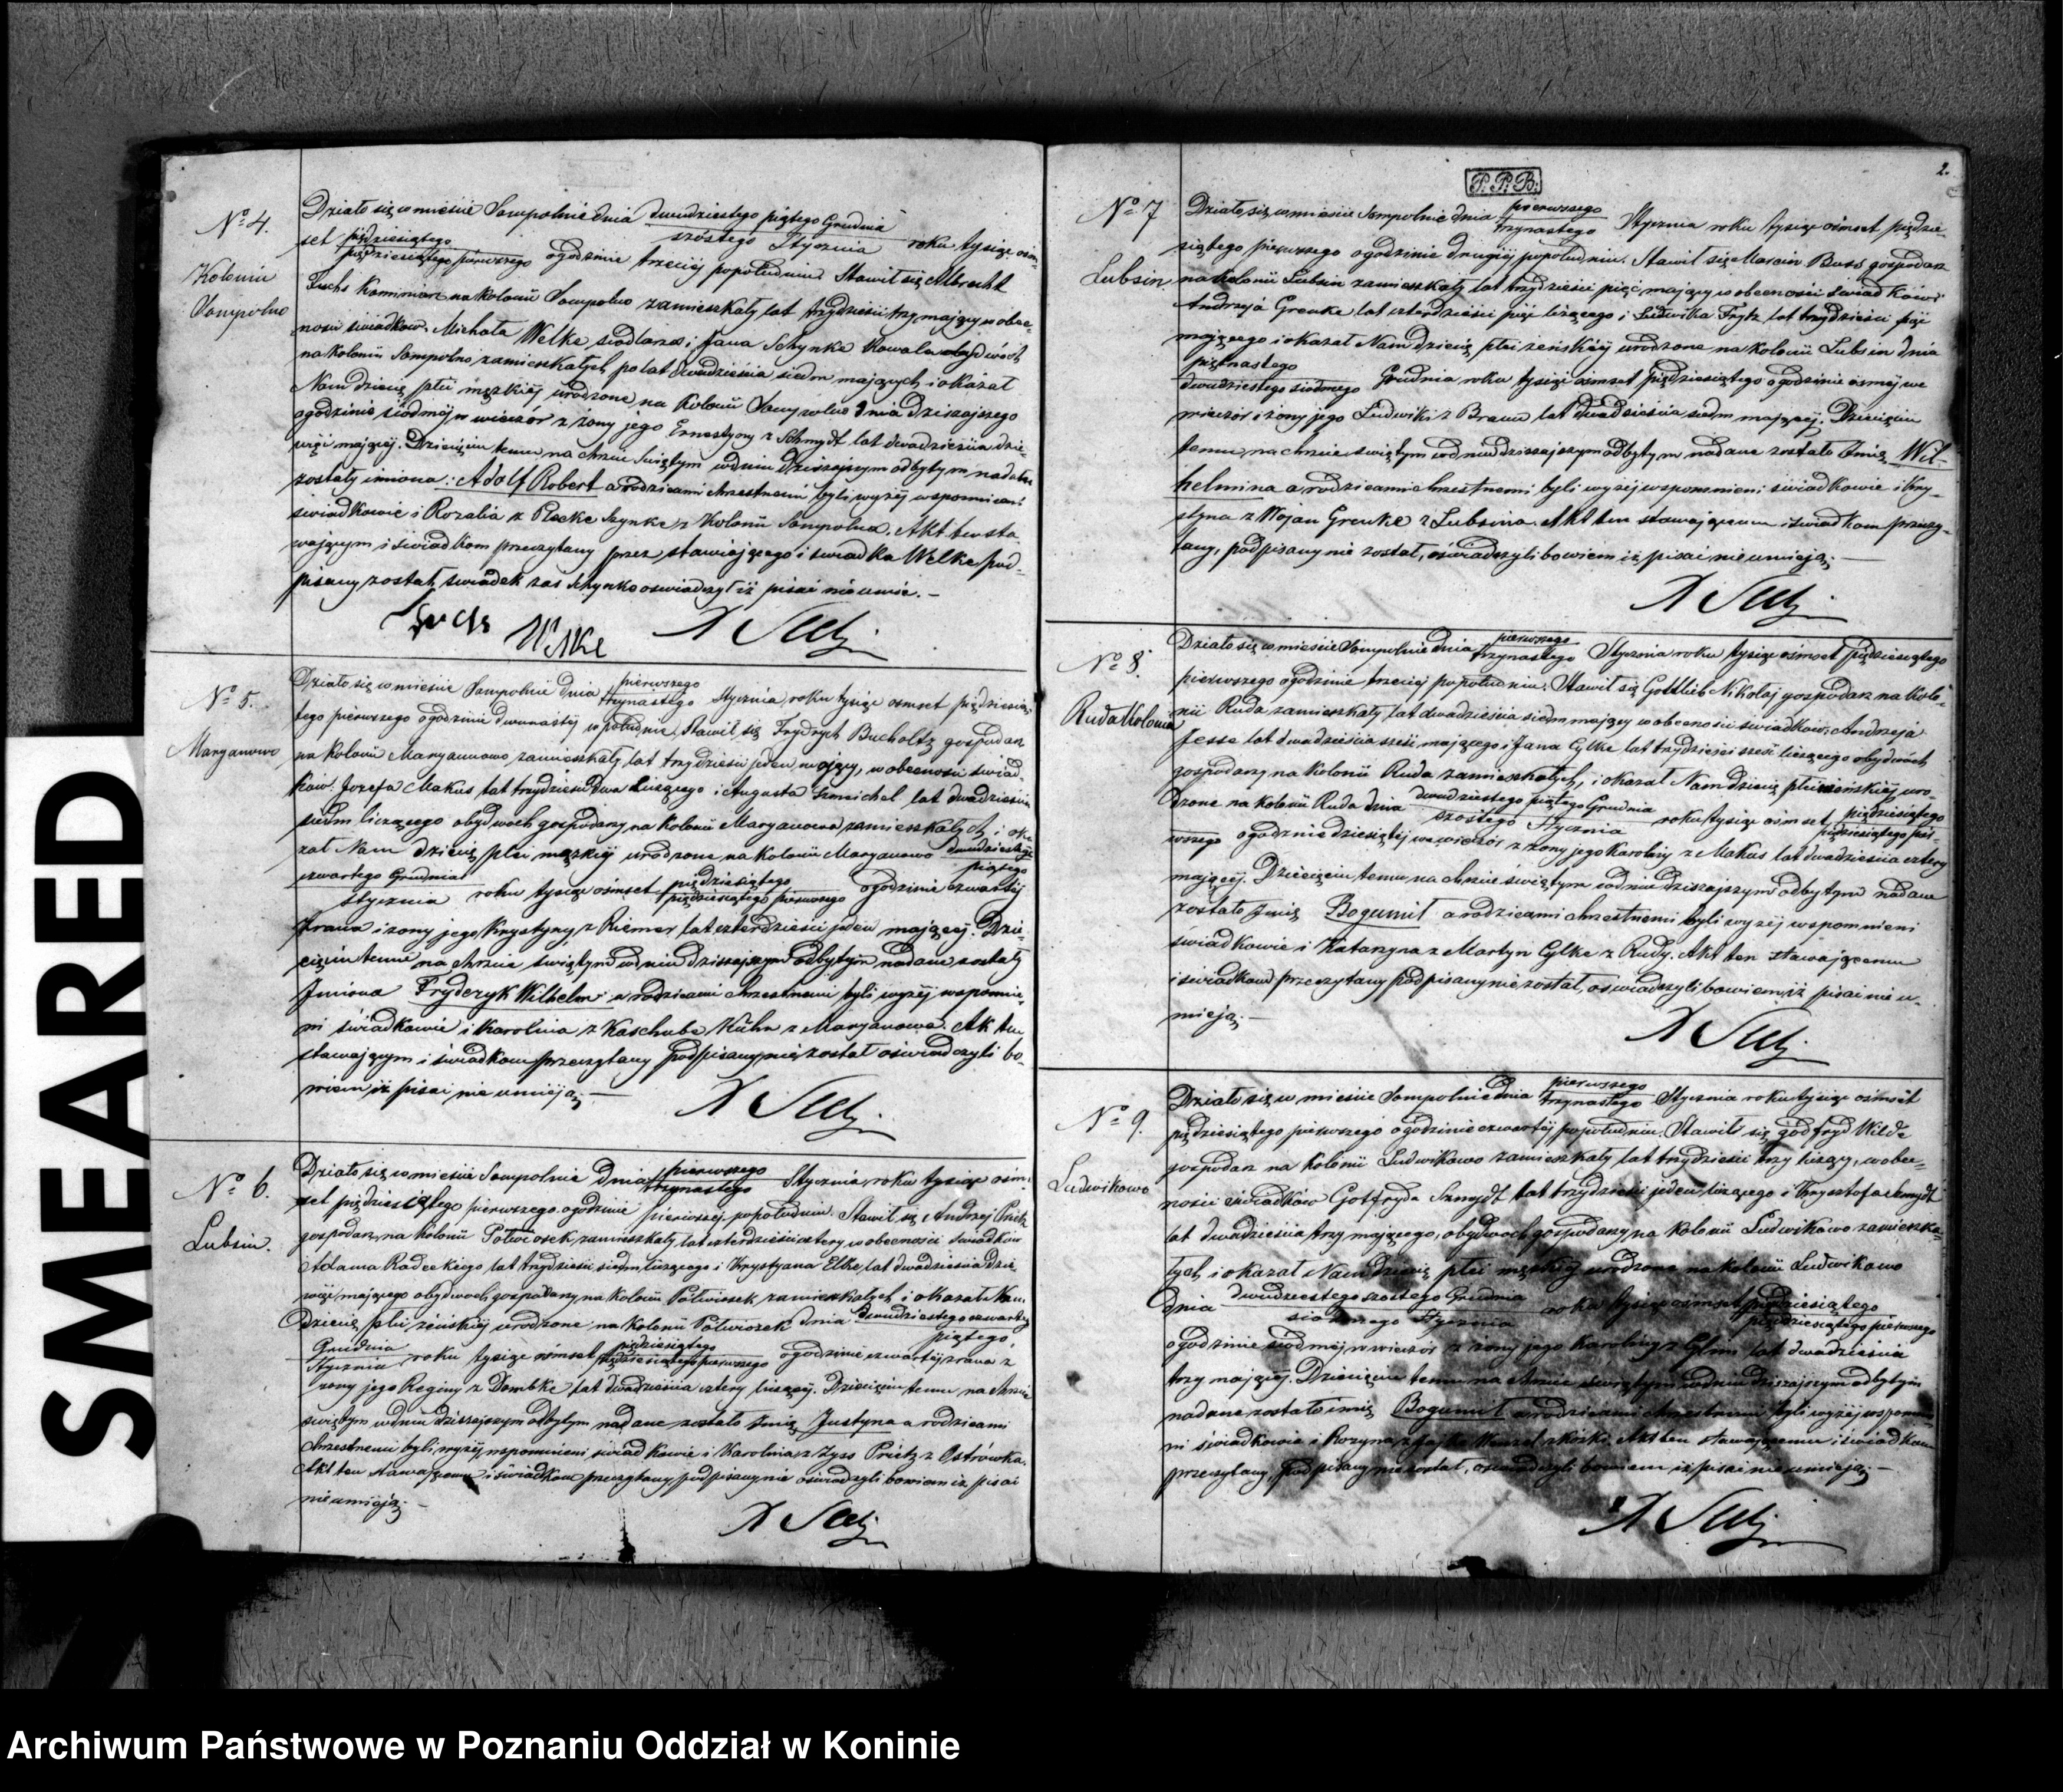 SMEARED
No 4.
Kolonia
Sompolno
Działo się w mieście Sompolnie dnia dwudziestego piątego Grudnia
szóstego Stycznia roku tysiąc ośm-
set pięćdziesiątego
pięćdziesiątego pierwszego o godzinie trzeciej popołudniu Stawił się Albrecht
Fuchs Kominiarz na Kolonii Sompolno zamieszkały lat trzydzieści trzy mający w obec-
ności świadków Michała Welke siodlarza i Jana Schynke Kowala obydwóch
na Kolonii Sompolno zamieszkałych po lat dwadzieścia siedm mających i okazał
Nam dziecię płci męzkiéj urodzone na Kolonii Sompolno dnia dzisiajszego
o godzinie siódméj w wieczór z żony jego Ernestyny z Schmydt lat dwadzieścia dzie-
więć mającej. Dziecięciu temu na chrzcie Świętym w dniu dzisiajszym odbytym nadane
zostały imiona: Adolf Robert a rodzicami chrzestnemi byli wyżéj wspomnieni
świadkowie i Rozalia z Placke Szynke z Kolonii Sompolna. Akt ten sta
wającym i świadkom przeczytany przez stawającego i świadka Welke pod-
pisany został, świadek zaś Schynke oświadczył iż pisać nie umie. –
Fuchs Welke
No 5.
Maryanowo
Działo się w mieście Sompolnie dnia pierwszego
trzynastego Stycznia, roku tysiąc ośmset pięćdziesią
tego pierwszego o godzinie dwunastéj w południe, Stawił się Frydrych Bucholtz gospodarz
na Kolonii Maryanowo zamieszkały, lat trzydzieści jeden mający, w obecności świad-
ków Jozefa Makus lat trzydzieści dwa liczącego i Augusta Szmichel lat dwadzieścia
siedm liczącego obydwóch gospodarzy na Kolonii Maryanowo zamieszkałych i oka
zał Nam dziecię płci męzkiéj urodzone na Kolonii Maryanowo dwudziestego
piątego
czwartego Grudnia
Stycznia roku tysiąc ośmset pięćdziesiątego
pięćdziesiątego pierwszego o godzinie czwartéj
z rana i żony jego Krystyny z Riemer lat czterdzieści jeden mającej. Dzie-
cięciu temu na chrzcie świętym w dniu dzisiajszym odbytym nadane zostały
Imiona Fryderyk Wilhelm a rodzicami chrzestnemi byli wyżéj wspomnie-
ni świadkowie i Karolina z Kaschube Kühn z Maryanowa. Akt ten
stawającym i świadkom przeczytany podpisany nie został oświadczyli bo-
wiem iż pisać nie umieją. –
No 6.
Lubsin.
Działo się w mieście Sompolnie Dnia pierwszego
trzynastego Stycznia, roku tysiąc ośm-
set pięćdziesiątego pierwszego o godzinie pierwszéj popołudniu Stawił się Andrzej Pritz
gospodarz, na Kolonii Potwiosek zamieszkały lat czterdzieści cztery w obecności świadków
Adama Radeckiego lat trzydzieści siedm liczącego i Krystyana Elke lat dwadzieścia dzie-
więć mającego obydwóch gospodarzy na Kolonii Potwiosek zamieszkałych i okazał Nam
Dziecię płci żeńskiéj urodzone na Kolonii Potwiosek dnia dwudziestego czwartego
piątego
Grudnia
Stycznia roku tysiąc ośmset pięćdziesiątego
pięćdziesiątego pierwszego o godzinie czwartéj z rana z
żony jego Reginy z Dombke lat dwadzieścia cztery liczącéj. Dziecięciu temu na chrzcie
świętym w dniu dzisiejszym odbytym nadane zostało imię Justyna a rodzicami
chrzestnemi byli wyżéj wspomnieni świadkowie i Karolina z Zyss Pritz z Ostrówka.
Akt ten stawającemu i świadkom przeczytany podpisany nie oświadczyli bowiem iż pisać
nie umieją. –
2.
P. P. B.
No 7
Lubsin
Działo się w mieście Sompolnie dnia pierwszego
trzynastego Stycznia roku tysiąc ośmset pięćdzie-
siątego pierwszego o godzinie drugiéj popołudniu. Stawił się Marcin Buss gospodarz
na Kolonii Lubsin zamieszkały lat trzydzieści pięć mający w obecności świadków
Andrzeja Greuke lat czterdzieści pięć liczącego i Ludwika Frytz lat trzydzieści pięć
mającego i okazał Nam dziecię płci żeńskiéj urodzone na Kolonii Lubsin dnia
piętnastego
dwudziestego siódmego Grudnia roku tysiąc ośmset pięćdziesiątego o godzinie ósméj we
wieczór i żony jego Ludwiki z Braun lat dwadzieścia siedm mającéj. Dziecięciu
temu na chrzcie świętym w dniu dzisiajszym odbytym nadane zostało Imię Wil-
helmina a rodzicami chrzestnemi byli wyżéj wspomnieni świadkowie i Kry-
styna z Wojan Greuke z Lubsina. Akt ten stawającemu i świadkom przeczy-
tany, podpisany nie został, oświadczyli bowiem iż pisać nie umieją. –
No 8.
Ruda Kolonia
Działo się w mieście Sompolnie dnia pierwszego
trzynastego Stycznia roku tysiąc ośmset pięćdziesiątego
pierwszego o godzinie trzeciej popołudniu. Stawił się Gottlieb Nikolaj gospodarz na Kolo-
nii Ruda zamieszkały lat dwadzieścia siedm mający w obecności świadków Andrzeja
Jesse lat dwadzieścia sześć mającego i Jana Cylke lat trzydzieści sześć liczącego obydwóch
gospodarzy na Kolonii Ruda zamieszkałych, i okazał Nam dziecię płci żeńskiéj uro-
dzone na Kolonii Ruda dnia dwudziestego piątego Grudnia
szóstego Stycznia roku tysiąc ośmset pięćdziesiątego
pięćdziesiątego pier-
wszego o godzinie dziesiątéj we wieczór z żony jego Karoliny z Makus lat dwadzieścia cztery
mającéj. Dziecięciu temu na chrzcie świętym w dniu dzisiejszym odbytym nadane
zostało Imię Bogumił a rodzicami chrzestnemi byli wyżej wspomnieni
świadkowie i Katarzyna z Martyn Cylke z Rudy. Akt ten stawającemu
i świadkom przeczytany podpisany nie został, oświadczyli bowiem iż pisać nie u-
mieją. –
No 9.
Ludwikowo
Działo się w mieście Sompolnie dnia pierwszego
trzynastego Stycznia roku tysiąc ośmset
pięćdziesiątego pierwszego o godzinie czwartéj popołudniu. Stawił się Godfryd Wilde
gospodarz na Kolonii Ludwikowo zamieszkały lat trzydzieści trzy liczący, w obec-
ności świadków Gotfryda Szmydt lat trzydzieści jeden liczącego i Krysztofa Schmydt
lat dwadzieścia trzy mającego, obydwóch gospodarzy na Kolonii Ludwikowo zamieszka-
łych i okazał Nam dziecię płci męzkiéj urodzone na Kolonii Ludwikowo
dnia dwudziestego szóstego Grudnia
siódmego Stycznia roku tysiąc ośmset pięćdziesiątego
pięćdziesiątego pierwszego
o godzinie siódméj w wieczór z żony jego Karoliny z Glim lat dwadzieścia
trzy mającéj. Dziecięciu temu na chrzcie świętym w dniu dzisiajszym odbytym
nadane zostało imię Bogumił a rodzicami chrzestnemi byli wyżéj wspomnie
ni świadkowie i Rozyna Wenzel Akt ten stawającemu i świadkom
przeczytany, podpisany nie został, oświadczyli bowiem iż pisać nie umieją. –
Archiwum Państwowe w Poznaniu Oddział w Koninie